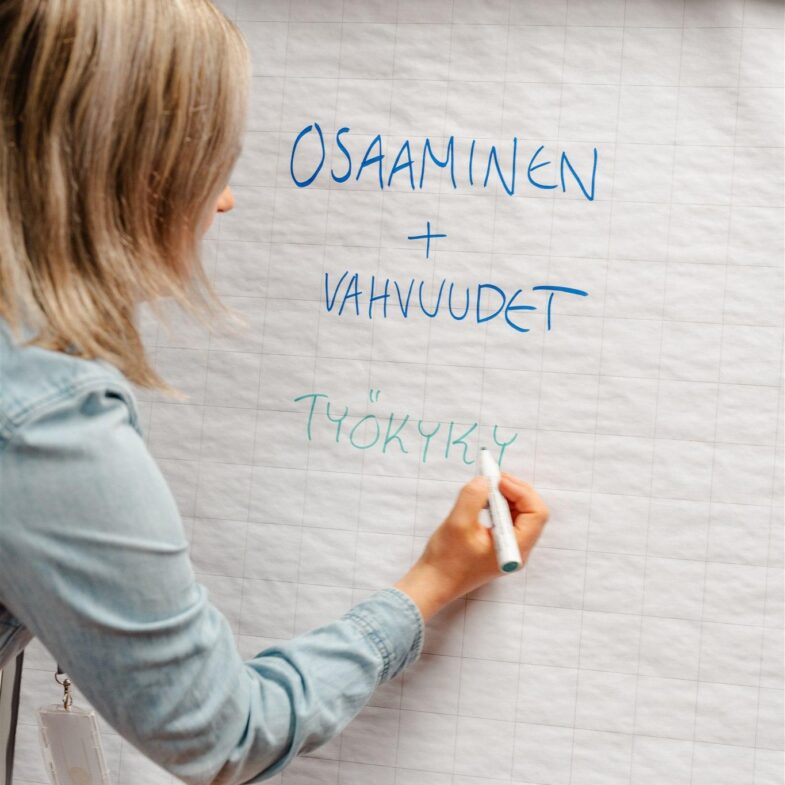 OSAAMINEN
+
VAHVUUDET
TYÖKYKY